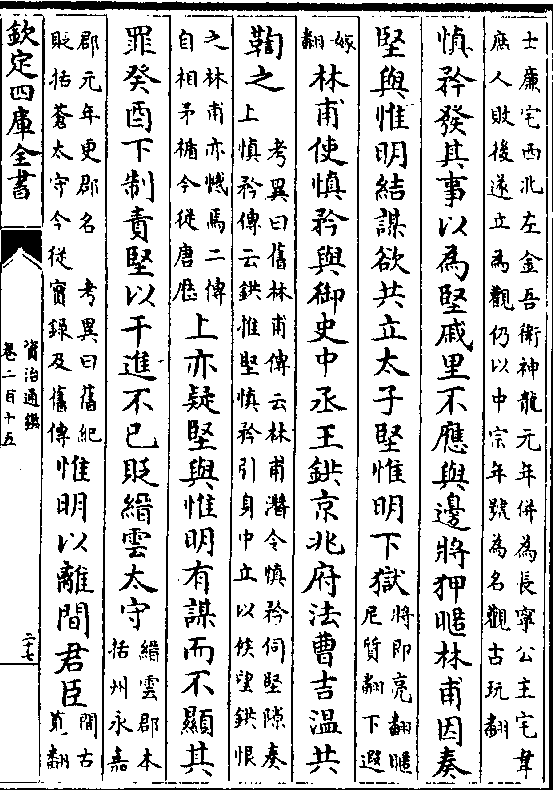 士廉宅西北左金吾衛神龍元年併為長寧公主宅韋
庶人敗後遂立為觀仍以中宗年號為名觀古玩翻
慎矜發其事以為堅戚里不應與邊將狎暱林甫因奏
堅與惟明結謀欲共立太子堅惟明下獄將即亮翻暱尼質翻下遐
嫁翻林甫使慎矜與御史中丞王鉷京兆府法曹吉溫共
鞫之考異曰舊林甫傳云林甫潛令慎矜伺堅隙奏上慎矜傳云鉷惟堅慎矜引身中立以候望鉷恨
之林甫亦憾焉二傳自相矛楯今從唐厯上亦疑堅與惟明有謀而不顯其
罪癸酉下制責堅以干進不已貶縉雲太守縉雲郡本括州永嘉
郡元年更郡名 考異曰舊紀貶括蒼太守今從實錄及舊傳惟明以離間君臣間古莧翻
欽定四庫全書
資治通鑑
卷二百十五
二十七